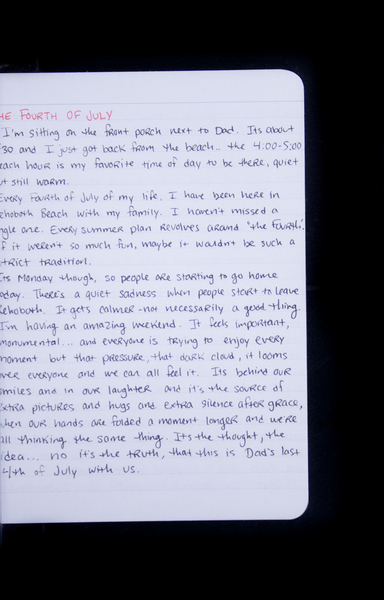 HE FOURTH OF JULY
I'm sitting on the front porch next to Dad. Its about
:30 and I just got back from the beach.. the 4:00-5:00
each hour is my favorite time of day to be there, quiet
ut still warm.
Every Fourth of July of my life, I have been here in
ehoboth Beach with my family. I haven't missed a
ngle one. Every summer plan revolves around "the fourth".
f it weren't so much fun, maybe it wouldn't be such a
trict tradition.
Its Monday though, so people are starting to go home
oday. There's a quiet sadness when people start to leave
Rehoboth. It gets calmer - not necessarily a good thing.
I'm having an amazing weekend. It feels important,
monumental... and everyone is trying to enjoy every
moment but that pressure, that dark cloud, it looms
over everyone and we can all feel it. Its behind our
smiles and in our laughter and it's the source of
extra pictures and hugs and extra silence after grace,
when our hands are folded a moment longer and we're
all thinking the same thing. It's the thought, the
idea... no it's the truth, that this is Dad's last
4th of July with us.